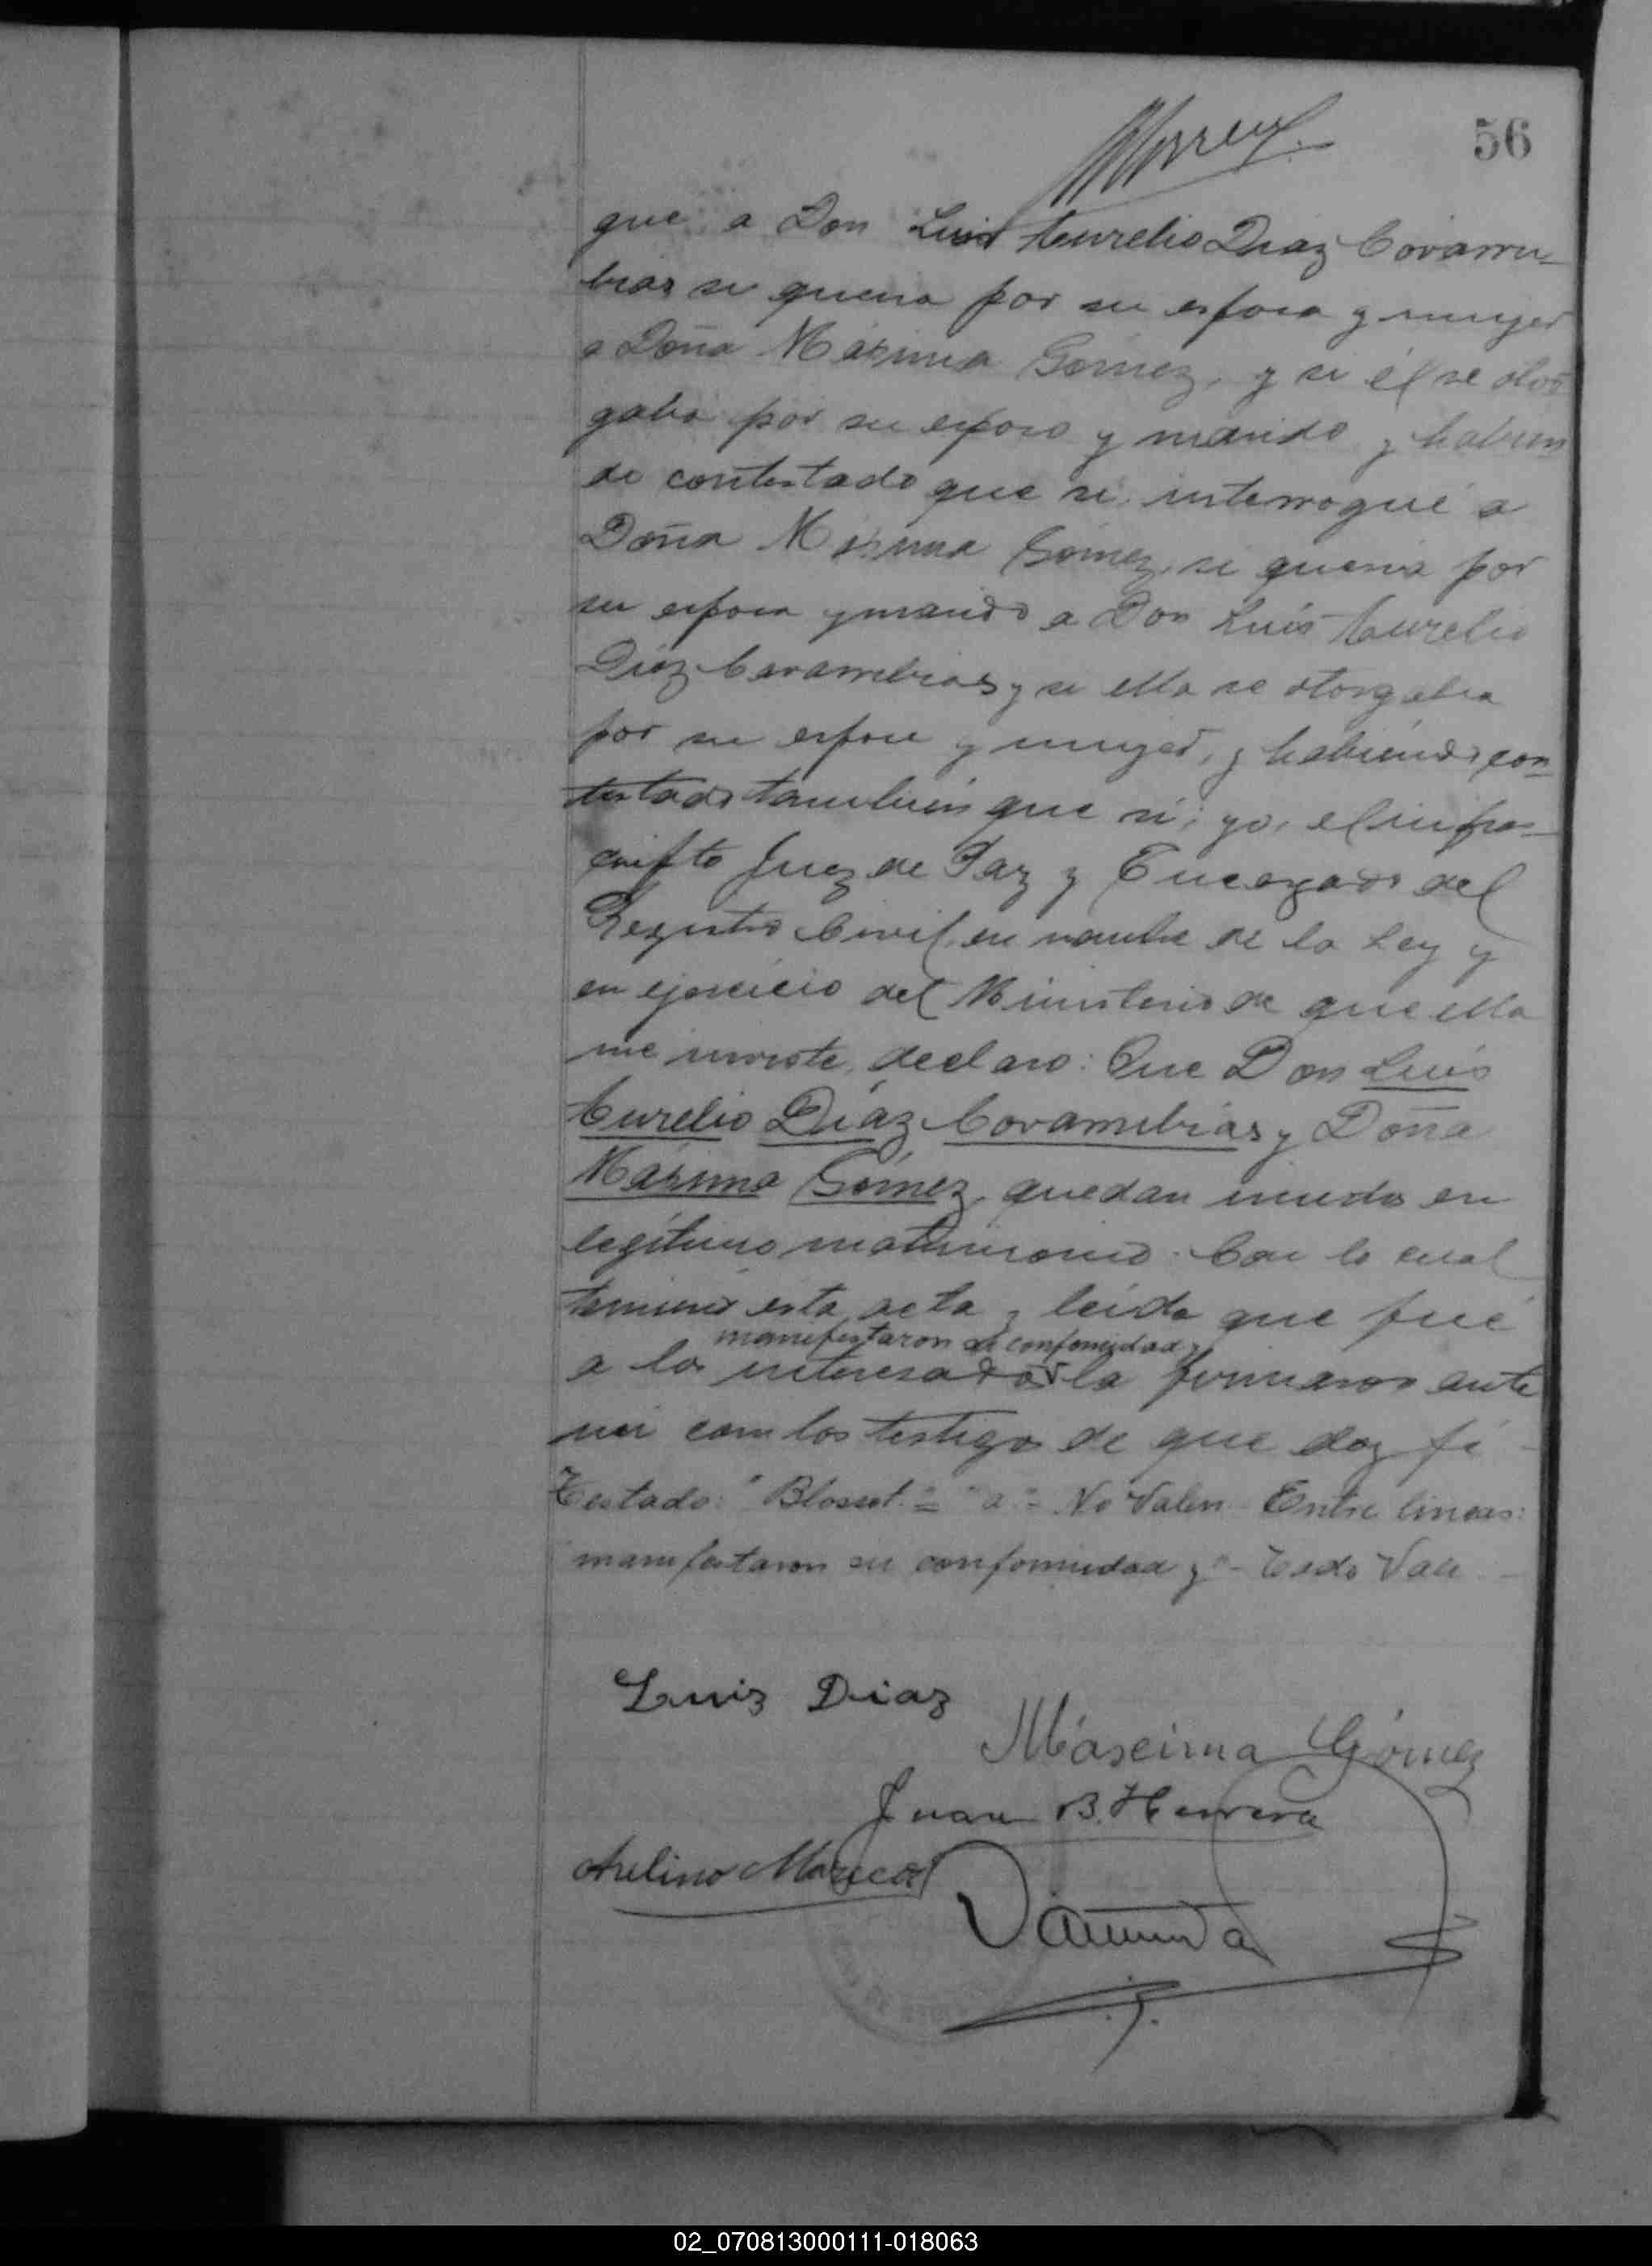 56
gue a Don Luis Aurelio Diaz Covarru-
bias si queria por su esposa y mujer
a Doña Máxima Gómez, y si él se otor
gaba por su esposo y marido y habien
do contestado que si, interrogué a
Doña Máxima Gómez, si queria por
su esposo y marido a Don Luis Aurelio
Diaz Covarrubias y si ella se otorgaba
por su esposa y mujer, y habiendo con
testado tambien que si, yo, el infras-
cripto Juez de Paz y Encargado del
Registro Civil, en nombre de la Ley y
en ejercicio del Ministerio de que ella
me inviste, declaro: Que Don Luis
Aurelio Díaz Covarrubias y Doña
Máxima Gómez, quedan unidos en
legítimo matrimonio. Con lo cual
terminó esta acta y leida que fué
manifestaron su conformidad y
a los interesados la firmaron ante
mi con los testigos de que doy fé
Testado: "Blosset" = "a" = No Valen Entre lineas:
"manifestaron su conformidad y" - Todo Vale
Luis Diaz
Máxima Gómez
Juan B. Herrera
Avelino
02_070813000111-018063